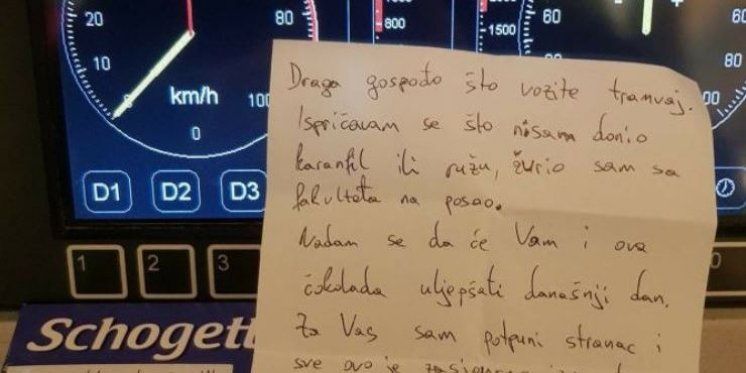 20
10
0
km/h
100
0
80
800
1500
60
80
60
80
00
D1
D2
D3
1
2
3
0
Schogett
Draga gospođo što vozite tramvaj.
Ispričavam se što nisam donio
karanfil ili ružu, žurio sam sa
fakulteta na posao.
Nadam se da će Vam i ova
čokolada uljepšati današnji dan.
Za Vas sam potpuni stranac i
sve ovo je